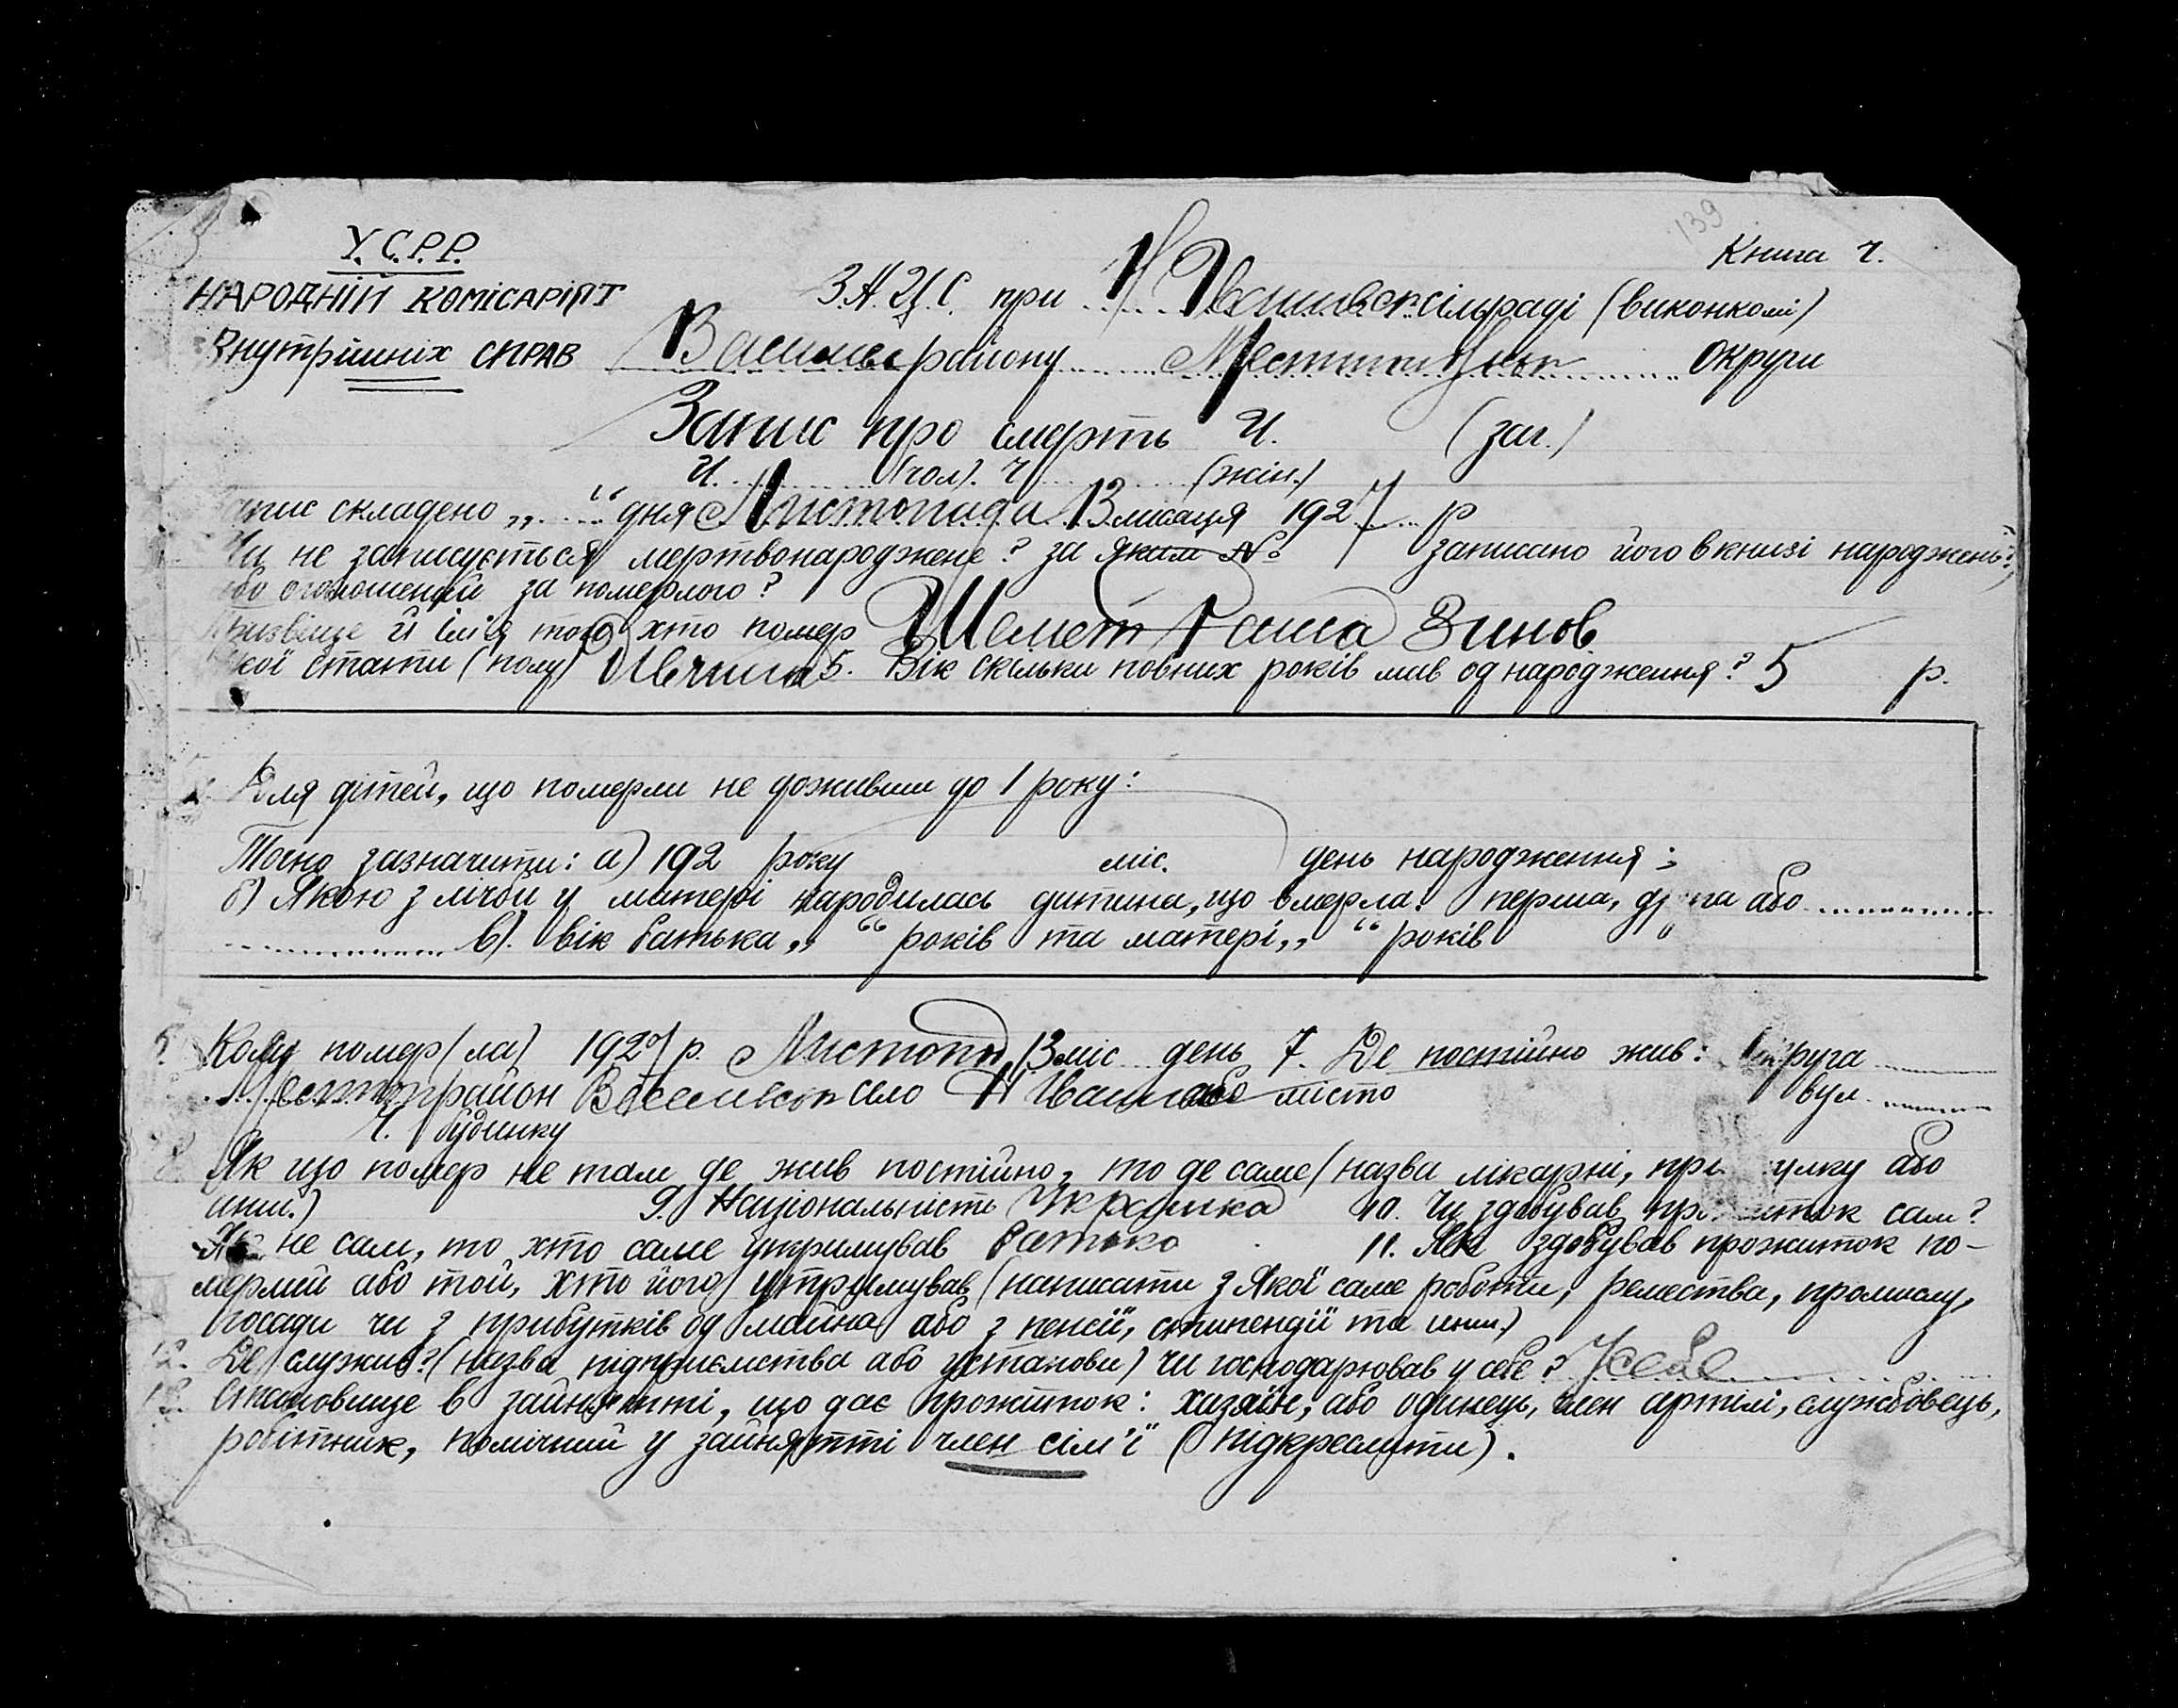 139
У.С.Р.Р. Книга Ч.
НАРОДНІЙ КОМІСАРІЯТ З.А.Ц.С. при Н Івашивск сільраді (виконкомі)
Внутрішніх СПРАВ району округи
Запис про смерть Ч. (заг.)
Ч. (чол). Ч (жін.)
Запис складено „ “ дня Листопада 13 місяця 1927 р
Чи не записується мертвонароджене? за яким № записано його в книзі народжень?,
або оголошений за померлого?
Прізвіще й імія того хто помер Шемет Гаша Зинов.
Якої стати (полу) Дівчина 5. Вік скільки повних років мав од народження? 5 р.
Для дітей, що померли не доживши до 1 року:
Точно зазначити: а) 192 року міс. день народження;
б) Якою з лічби у матері народилась дитина, що вмерла: перша, друга або
в). вік батька „ “ років та матері „ “ років
Коли помер (ла) 1927 р. Листопад 13 міс день 7. Де постійно жив: округа
район село Н Иваш або місто вул.
Ч. будинку
Як що помер не там де жив постійно, то де саме (назва лікарні, притулку або
инш.) 9. Національність Украинка 10. Чи здобував прожиток сам?
Як не сам, то хто саме утримував батько 11. Як здобував прожиток по-
мерлий або той, хто його утримував (написати з якої саме роботи, ремества, промислу,
посади чи з прибутків од майна або з пенсії, стипендії та инш.)
12. Де служив? (назва підприємства або установи) чи господарював у себе? У себе
13. Становище в зайнятті, що дає прожиток: хазяїн, або одинець, член артілі, службовець,
робітник, помічний у зайнятті член сім'ї (підкреслити).